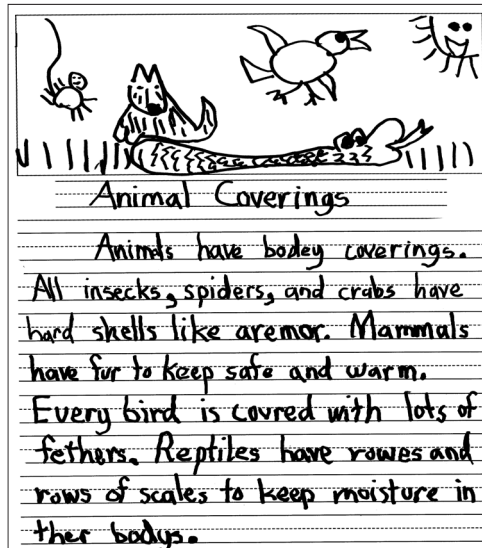 Animal Coverings
Animals have bodey coverings.
All insecks, spiders, and crabs have
hard shells like aremor. Mammals
have fur to keep safe and warm.
Every bird is covred with lots of
fethers. Reptiles have rowes and
rows of scales to keep moisture in
ther bodys.